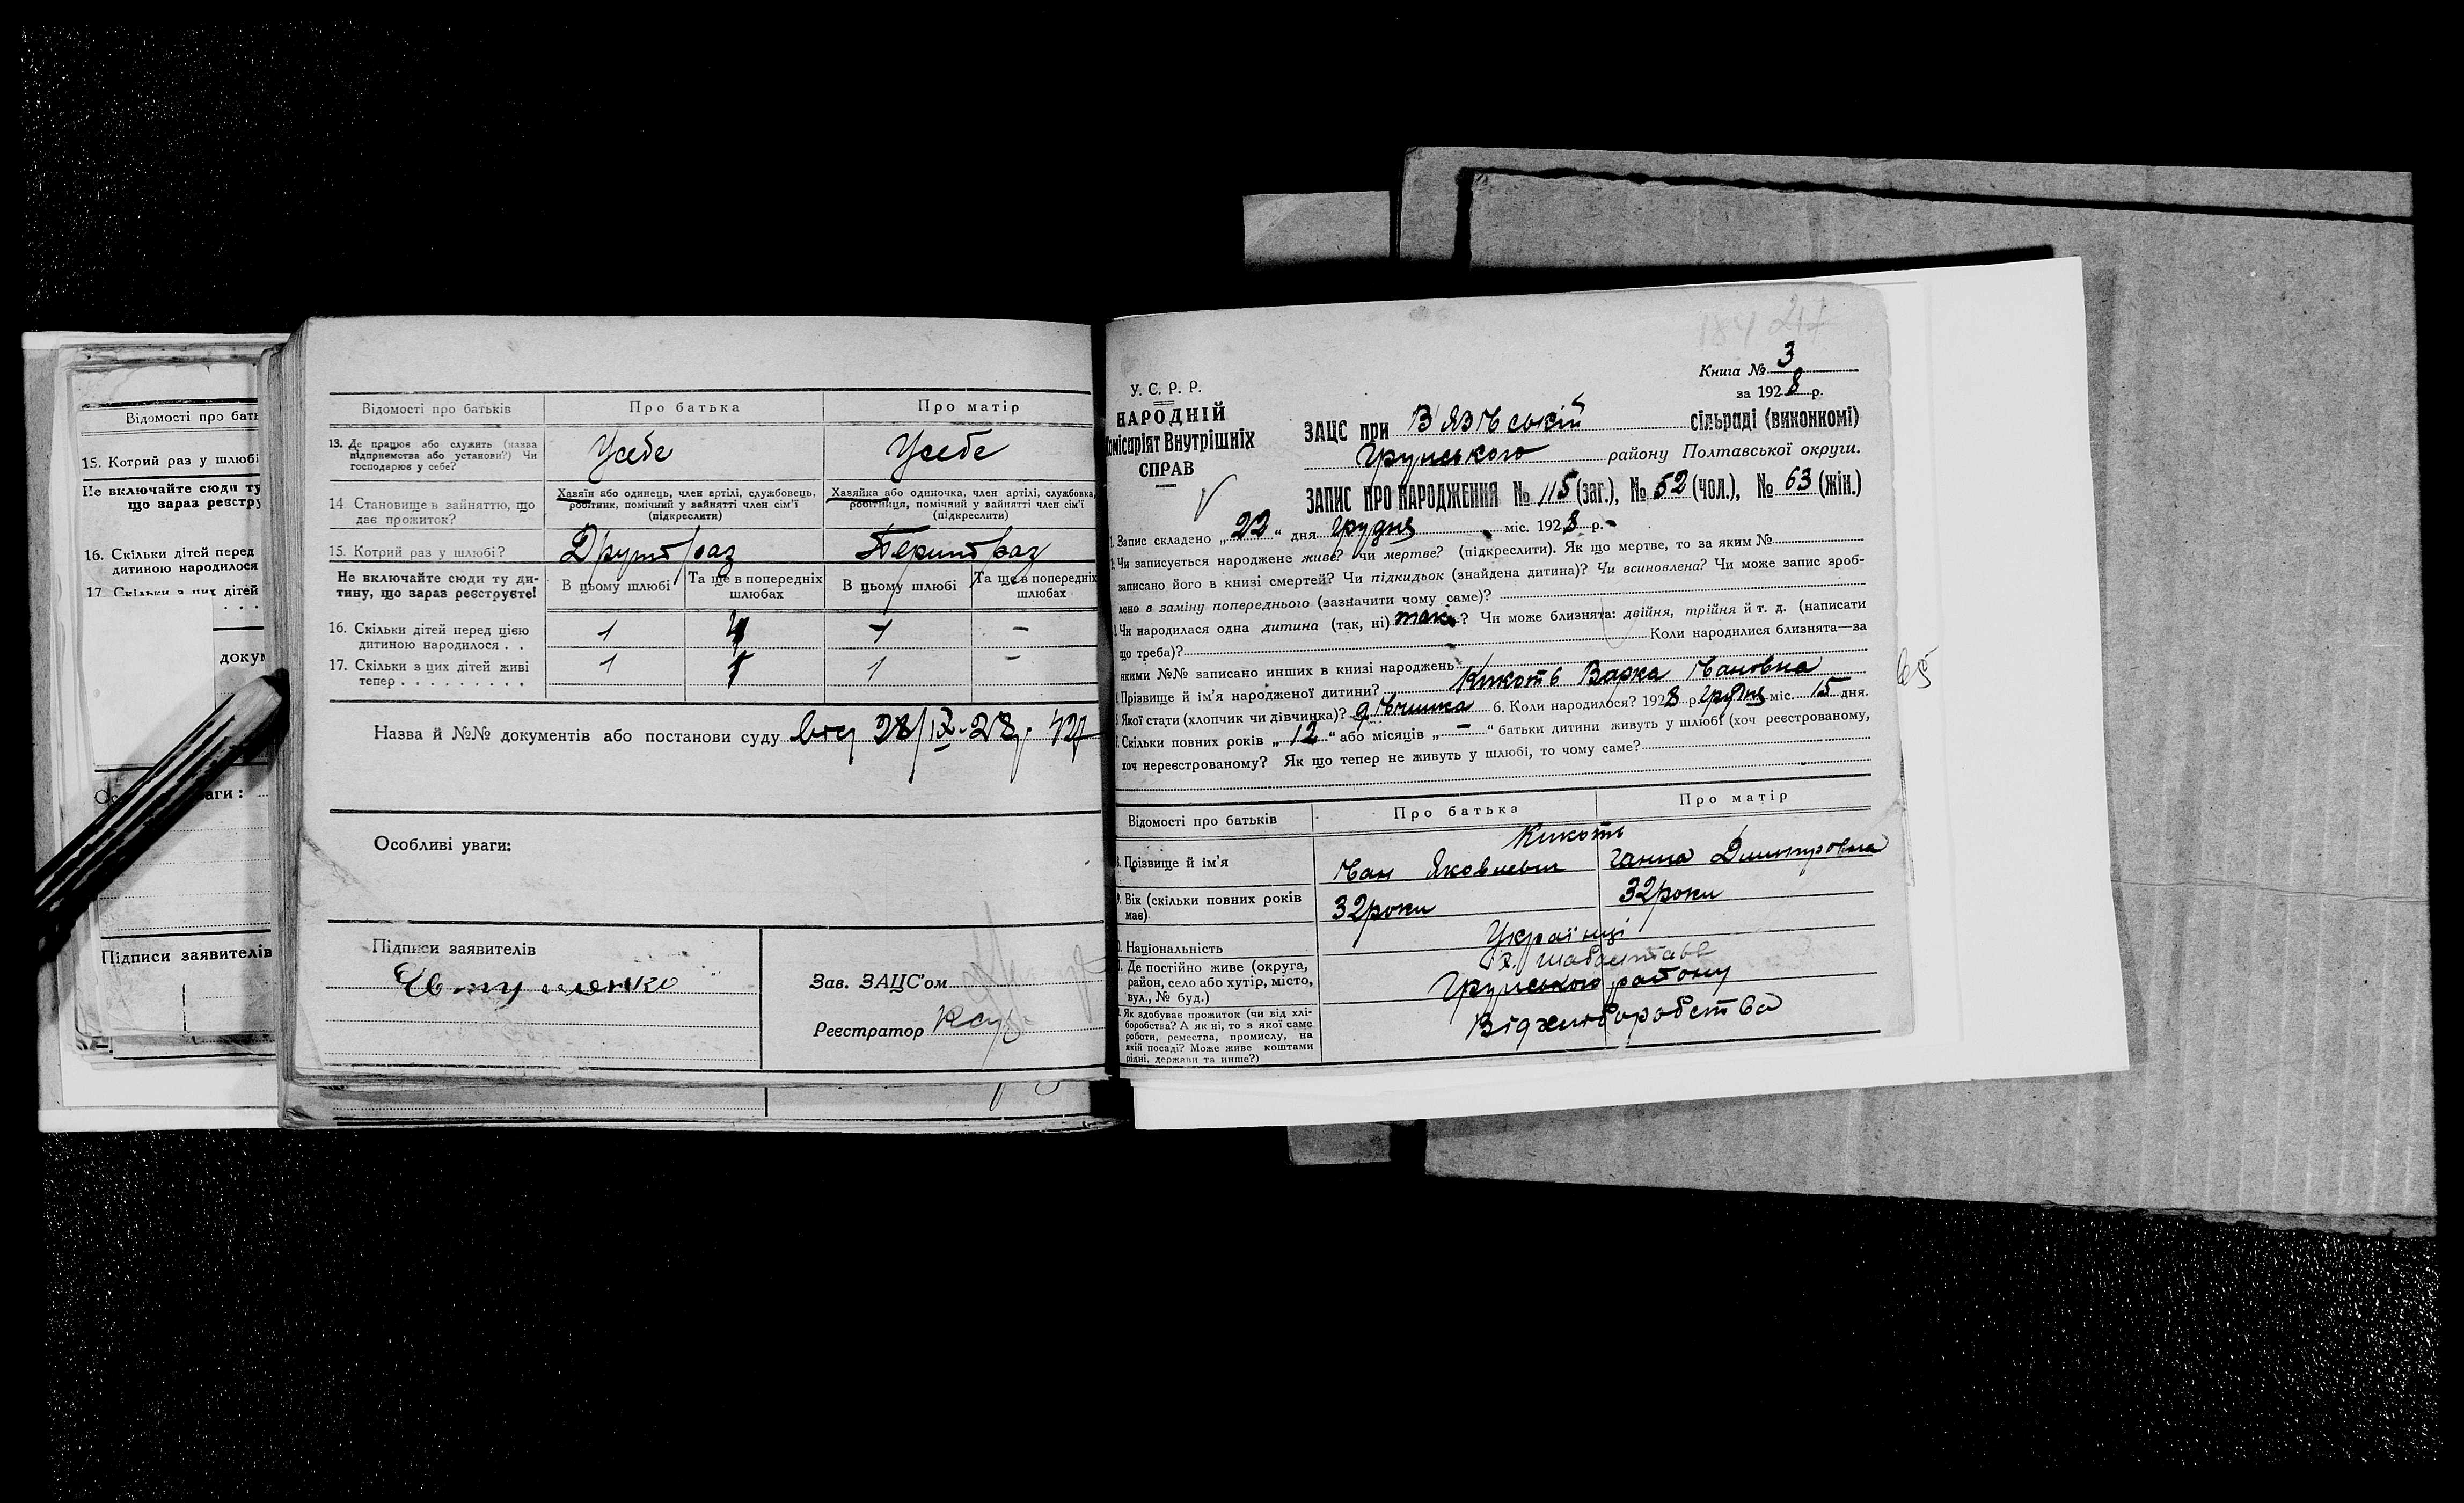 Відомості про бать
15. Котрий раз у шлюбі
Не включайте сюди ту
що зараз реєстру
16. Скільки дітей перед
дитиною народилося
17. Скільки з цих дітей
докум
аги:
Підписи заявителів
Відомості про батьків Про батька Про матір
13. Де працює або служить (назва підприємства або установи?) Чи господарює у себе?
Усебе Усебе
14 Становище в зайняттю, що дає прожиток?
Хазяїн або одинець, член артілі, службовець, робітник, помічний у зайнятті член сім'ї (підкреслити)
Хазяйка або одиночка, член артілі, службовка, робітниця, помічний у зайнятті член сім'ї (підкреслити)
15. Котрий раз у шлюбі? Другий раз Перший раз
Не включайте сюди ту дитину, що зараз реєструєте!
В цьому шлюбі Та ще в попередніх шлюбах В цьому шлюбі Та ще в попередніх шлюбах
16. Скільки дітей перед цією
дитиною народилося . . 1 1 –
17. Скільки з цих дітей живі
тепер . . . . . . . . . 1 1 1 –
Назва й №№ документів або постанови суду 28/IX-28р.
Особливі уваги:
Підписи заявителів
Зав. ЗАЦС'ом
Реєстратор
Книга № 3
за 1928 р.
У. С. Р. Р.
НАРОДНІЙ
Комісаріят Внутрішніх
СПРАВ
ЗАЦС при В'язівській сільраді (виконкомі)
Грунського району Полтавської округи.
ЗАПИС ПРО НАРОДЖЕННЯ № 115 (заг.), № 52 (чол.), № 63 (жін.)
1. Запис складено „22“ дня грудня міс. 1928 р.
2. Чи записується народжене живе? чи мертве? (підкреслити). Як що мертве, то за яким №
записано його в книзі смертей? Чи підкидьок (знайдена дитина)? Чи всиновлена? Чи може запис зроб-
лено в заміну попереднього (зазначити чому саме)?
3. Чи народилася одна дитина (так, ні) так? Чи може близнята: двійня, трійня й т. д. (написати
що треба)? Коли народилися близнята—за
якими №№ записано инших в книзі народжень
4. Прізвище й ім'я народженої дитини? Кикоть Варка Івановна
5. Якої стати (хлопчик чи дівчинка)? дівчинка 6. Коли народилося? 1928 р. грудня міс. 15 дня.
7. Скільки повних років „12“ або місяців „–“ батьки дитини живуть у шлюбі (хоч реєстрованому,
хоч нереєстрованому? Як що тепер не живуть у шлюбі, то чому саме?
Відомості про батьків Про батька Про матір
Кикоть
8. Прізвище й ім'я Іван Яковлевич Ганна Димитровна
9. Вік (скільки повних років має) 32 роки 32 роки
10. Національність Українці
11. Де постійно живе (округа, район, село або хутір, місто, вул., № буд.)
Грунського району
12. Як здобуває прожиток (чи від хліборобства? А як ні, то з якої саме роботи, ремества, промислу, на якій посаді? Може живе коштами рідні, держави та инше?)
Від хліборобства